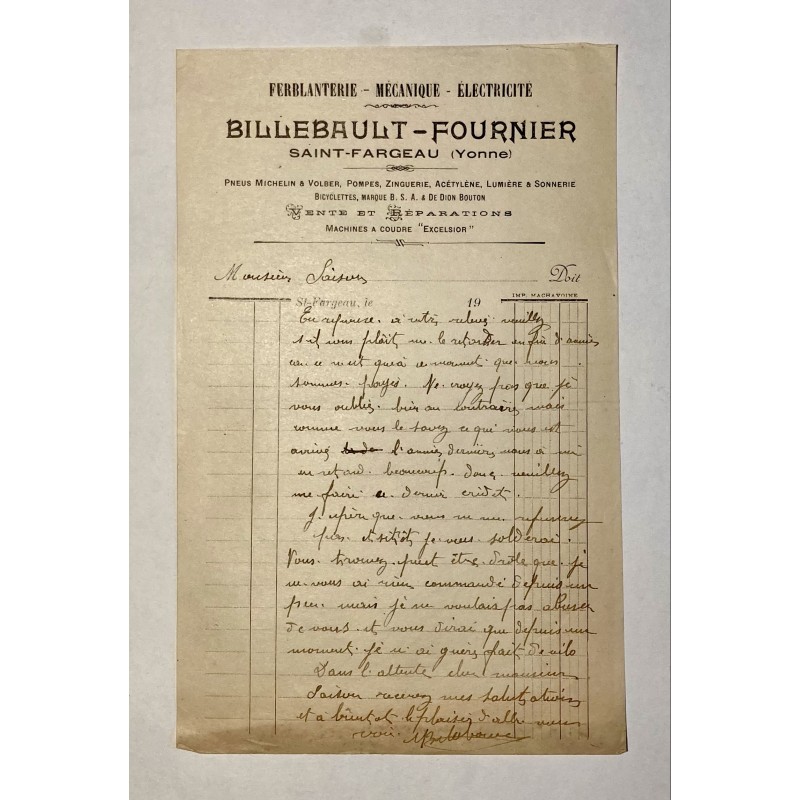 FERBLANTERIE - MÉCANIQUE - ÉLECTRICITÉ
BILLEBAULT-FOURNIER
SAINT-FARGEAU (Yonne)
PNEUS MICHELIN & VOLBER, POMPES, ZINGUERIE, ACÉTYLÈNE, LUMIÈRE & SONNERIE
BICYCLETTES, MARQUE B. S. A. & DE DION BOUTON
VENTE ET RÉPARATIONS
MACHINES A COUDRE "EXCELSIOR"
Monsieur Saison Doit
St-Fargeau, le 19 IMP. MACHAVOINE
En reponse a votre relevé veuillez
s-il vous plâit me le retarder en fin d'année
car ce n'est qu'à ce moment que nous
sommes payés. Ne croyez pas que je
vous oublie bien au contraire mais
comme vous le savez ce qui nous est
arrivé l'année dernière nous a mis
en retard beaucoup donc veuillez
me faire ce dernier crédit.
J'espère que vous ne me refuserez
pas et sitôt je vous solderai.
Vous trouvez peut être drôle que je
ne vous ai rien commandé depuis un
peu mais je ne voulais pas abuser
de vous et vous dirai que depuis un
moment je n'ai guère fait de vélo
Dans l'attente cher monsieur
Saison recevez mes salutations
et à bientot le plaisir d'aller vous
voir